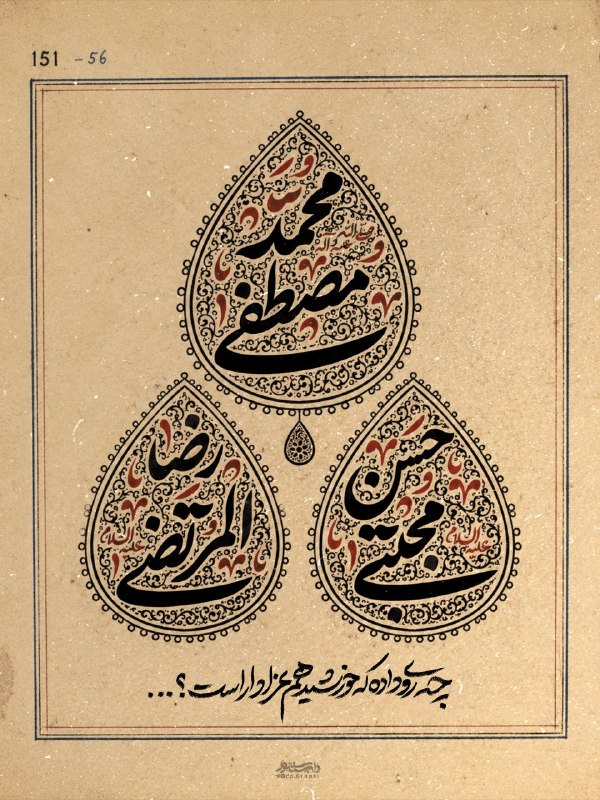 151 - 56
محمد
صلی الله علیه و آله
مصطفی
رضا
المرتضی
علیه السلام
حسن
مجتبی
علیه السلام
چه روی داده که خورشید هم عزادار است؟...